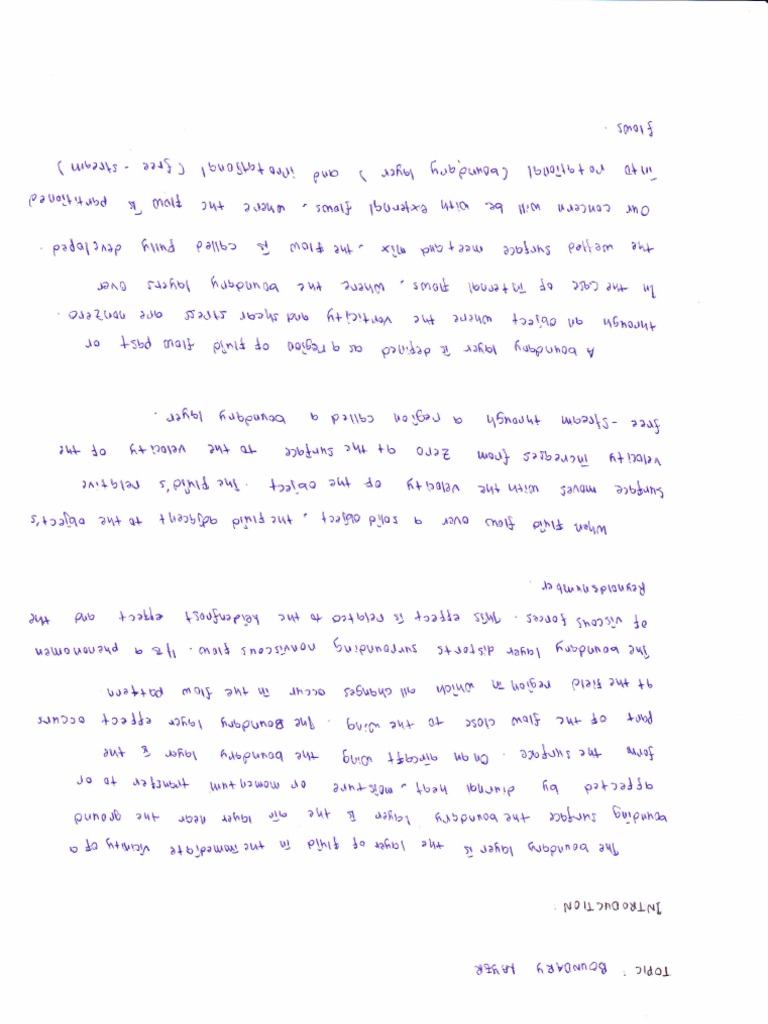 TOPIC : BOUNDARY LAYER
INTRODUCTION :
The boundary layer is the layer of fluid in the immediate vicinity of a
bounding surface the boundary layer is the air layer near the ground
affected by diurnal heat, moisture or momentum transfer to or
form the surface. On an aircaft wing the boundary layer is the
part of the flow close to the wing. The Boundary layer effect occurs
at the field region in which all changes occur in the flow pattern
The boundary layer distorts surrounding nonviscous flow. It is a phenomenon
of viscous forces. This effect is related to the heidenfrost effect and the
Reynoldsnumber.
When fluid flow over a solid object, the fluid adjacent to the objects's
surface moves with the velocity of the object. The fluid's relative
velocity increases from zero at the surface to the velocity of the
free-stream through a region called a boundary layer.
A boundary layer is defined as a region of fluid flow past or
through an object where the vorticity and shear stress are nonzero.
In the case of internal flows, where the boundary layers over
the wetted surface meet and mix, the flow is called fully developed.
Our concern will be with external flows, where the flow is partitioned
into rotational (boundary layer) and irrotational (free-stream)
flows.